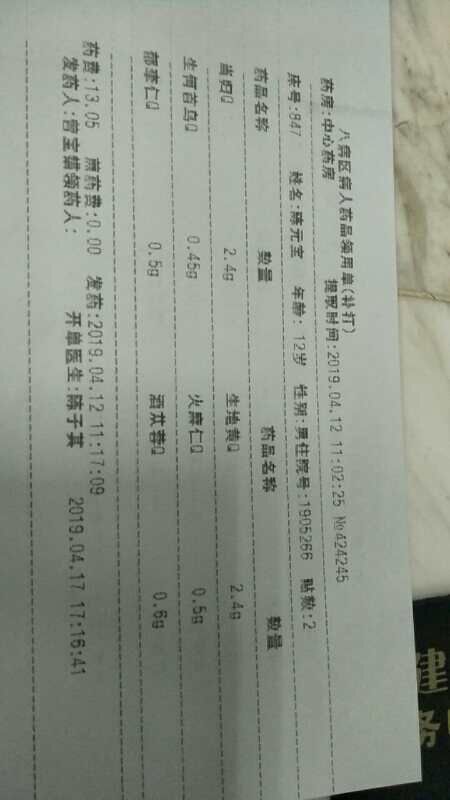 八病区病人药品领用单(补打)
药房:中心药房 提取时间:2019.04.12 11:02:25 №424245
床号:847 姓名:陈元宝 年龄: 12岁 性别:男住院号:1905266 贴数:2
药品名称 数量 药品名称 数量
当归Q 2.4g 生地黄Q 2.4g
生何首乌Q 0.45g 火麻仁Q 0.5g
郁李仁Q 0.5g 酒苁蓉Q 0.6g
药费:13.05 煎药费:0.00 发药:2019.04.12 11:17:09
发药人:曾宝 领药人: 开单医生:陈子英 2019.04.17 17:16:41
健
务